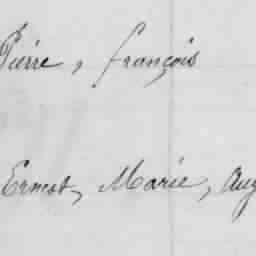 Pierre, françois
Ernest, Marie, Aug